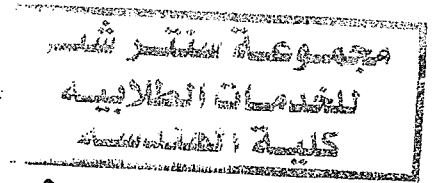 مجموعة سنتر شـ
للخدمات الطلابيه
كلية الهندسه